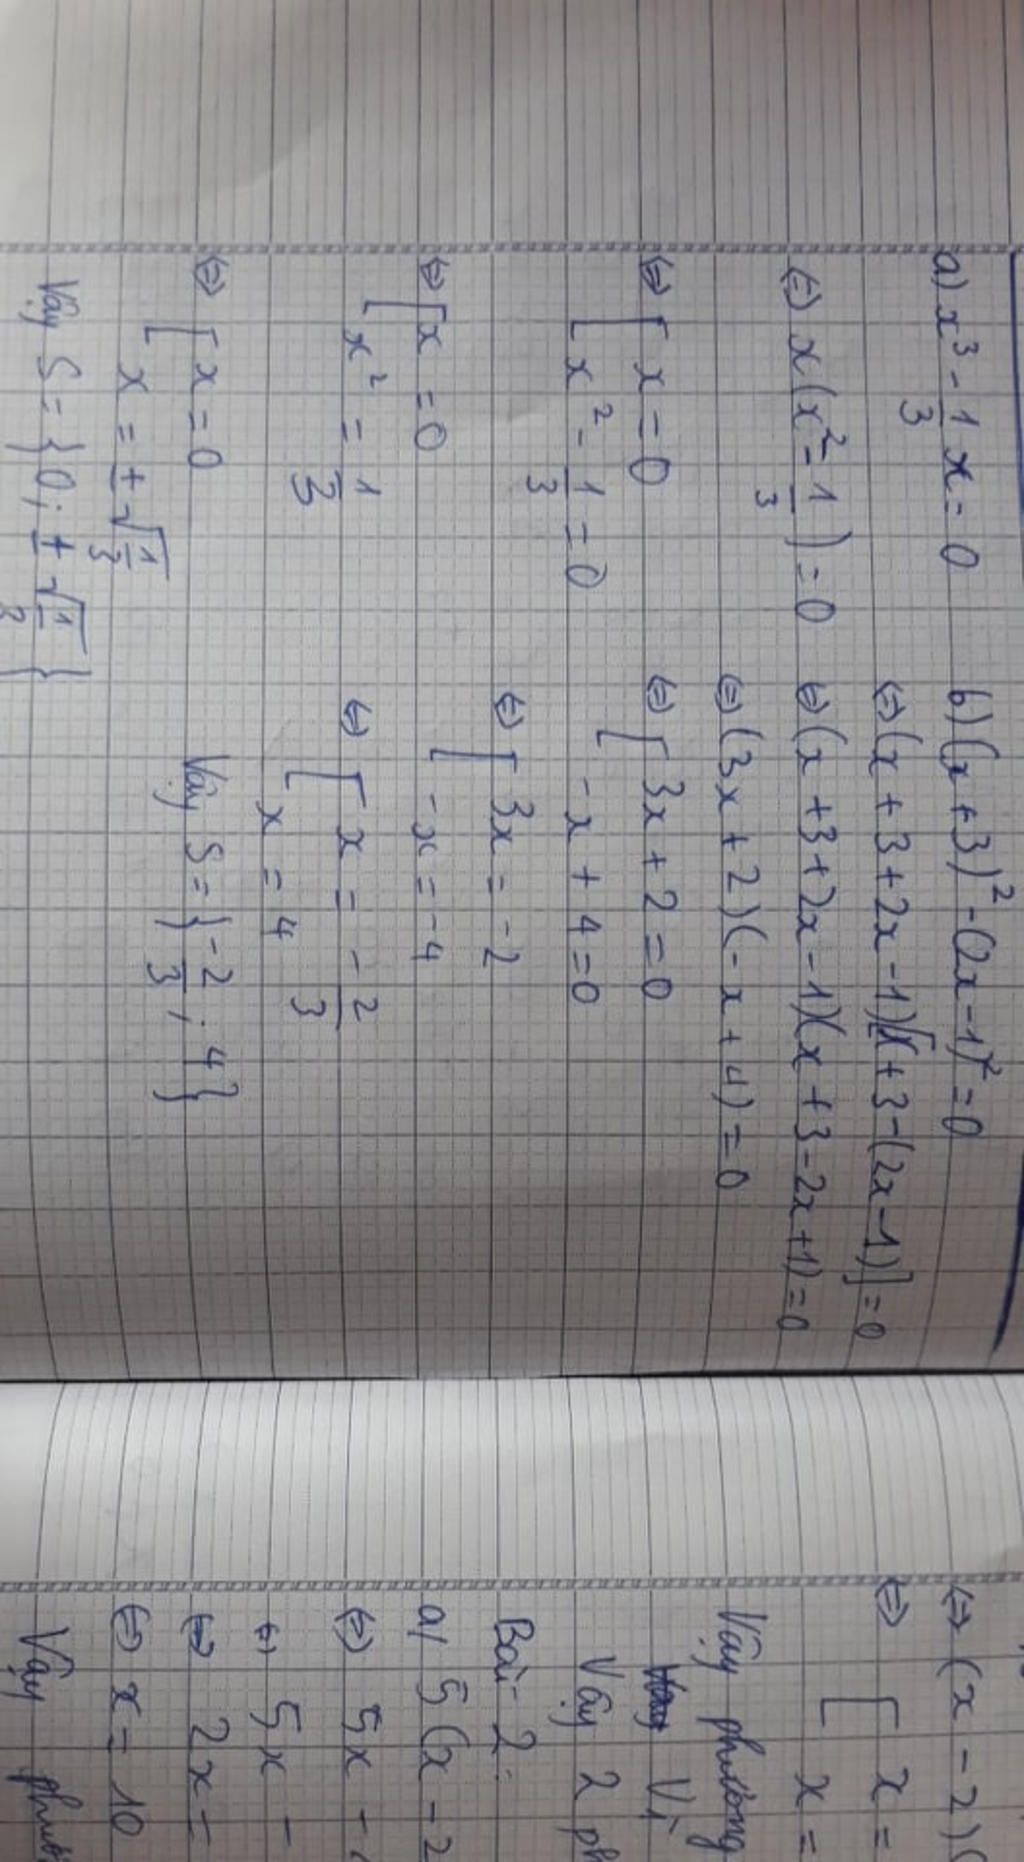 a) x³ - 1/3 x = 0
⇔ x(x² - 1/3) = 0
⇔ [ x = 0
x² - 1/3 = 0
⇔ [ x = 0
x² = 1/3
⇔ [ x = 0
x = ± √(1/3)
Vậy S = { 0; ± √(1/3) }
b) (x + 3)² - (2x - 1)² = 0
⇔ (x + 3 + 2x - 1)[x + 3 - (2x - 1)] = 0
⇔ (x + 3 + 2x - 1)(x + 3 - 2x + 1) = 0
⇔ (3x + 2)(-x + 4) = 0
⇔ [ 3x + 2 = 0
-x + 4 = 0
⇔ [ 3x = -2
-x = -4
⇔ [ x = -2/3
x = 4
Vậy S = { -2/3; 4 }
⇔ (x - 2)(
⇔ [ x =
x =
Vậy phương
Vì
Vậy 2 ph
Bài 2:
a/ 5(x - 2
⇔ 5x -
⇔ 5x -
⇔ 2x =
⇔ x = 10
Vậy phươ